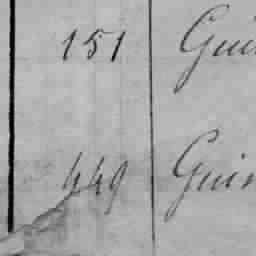 151 Gui
449 Guin